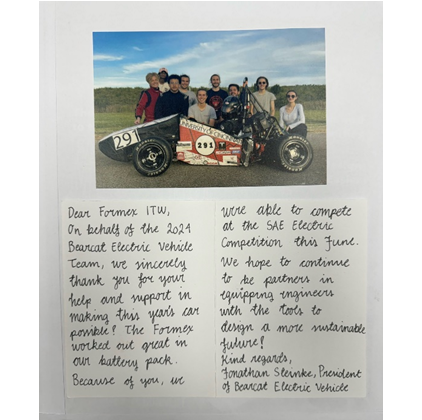 291
291
Dear Formex ITW,
On behalf of the 2021
Bearcat Electric Vehicle
Team, we sincerely
thank you for your
help and support in
making this year's car
possible! The Formex
worked out great in
our battery pack.
Because of you, we
were able to compete
at the SAE Electric
Competition this June.
We hope to continue
to be partners in
equipping engineers
with the tools to
design a more sustainable
future!
Kind regards,
Jonathan Steinke, President
of Bearcat Electric Vehicle